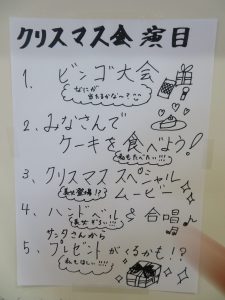 クリスマス会 演目
1. ビンゴ大会
なにが
当たるかな〜?
2. みなさんで
ケーキを食べよう!
私もたべたい!!!
3. クリスマス スペシャル
ムービー
4. ハンドベル & 合唱
サンタさんから
5. プレゼントがくるかも!?
私もほしい!!!!